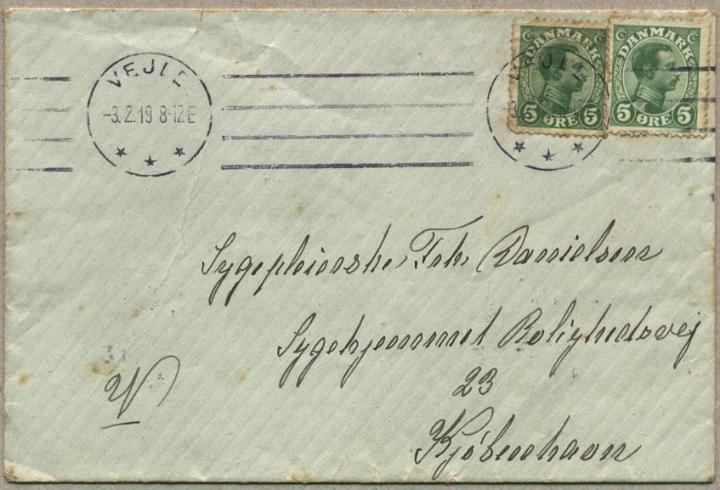 VEJLE
-3.2.19 8-12E
VEJLE
DANMARK
5 ØRE 5
DANMARK
5 ØRE 5
Sygeplejerske, Frk. Danielsen
Sygehjemmet Rolighedsvej
23
Kjøbenhavn